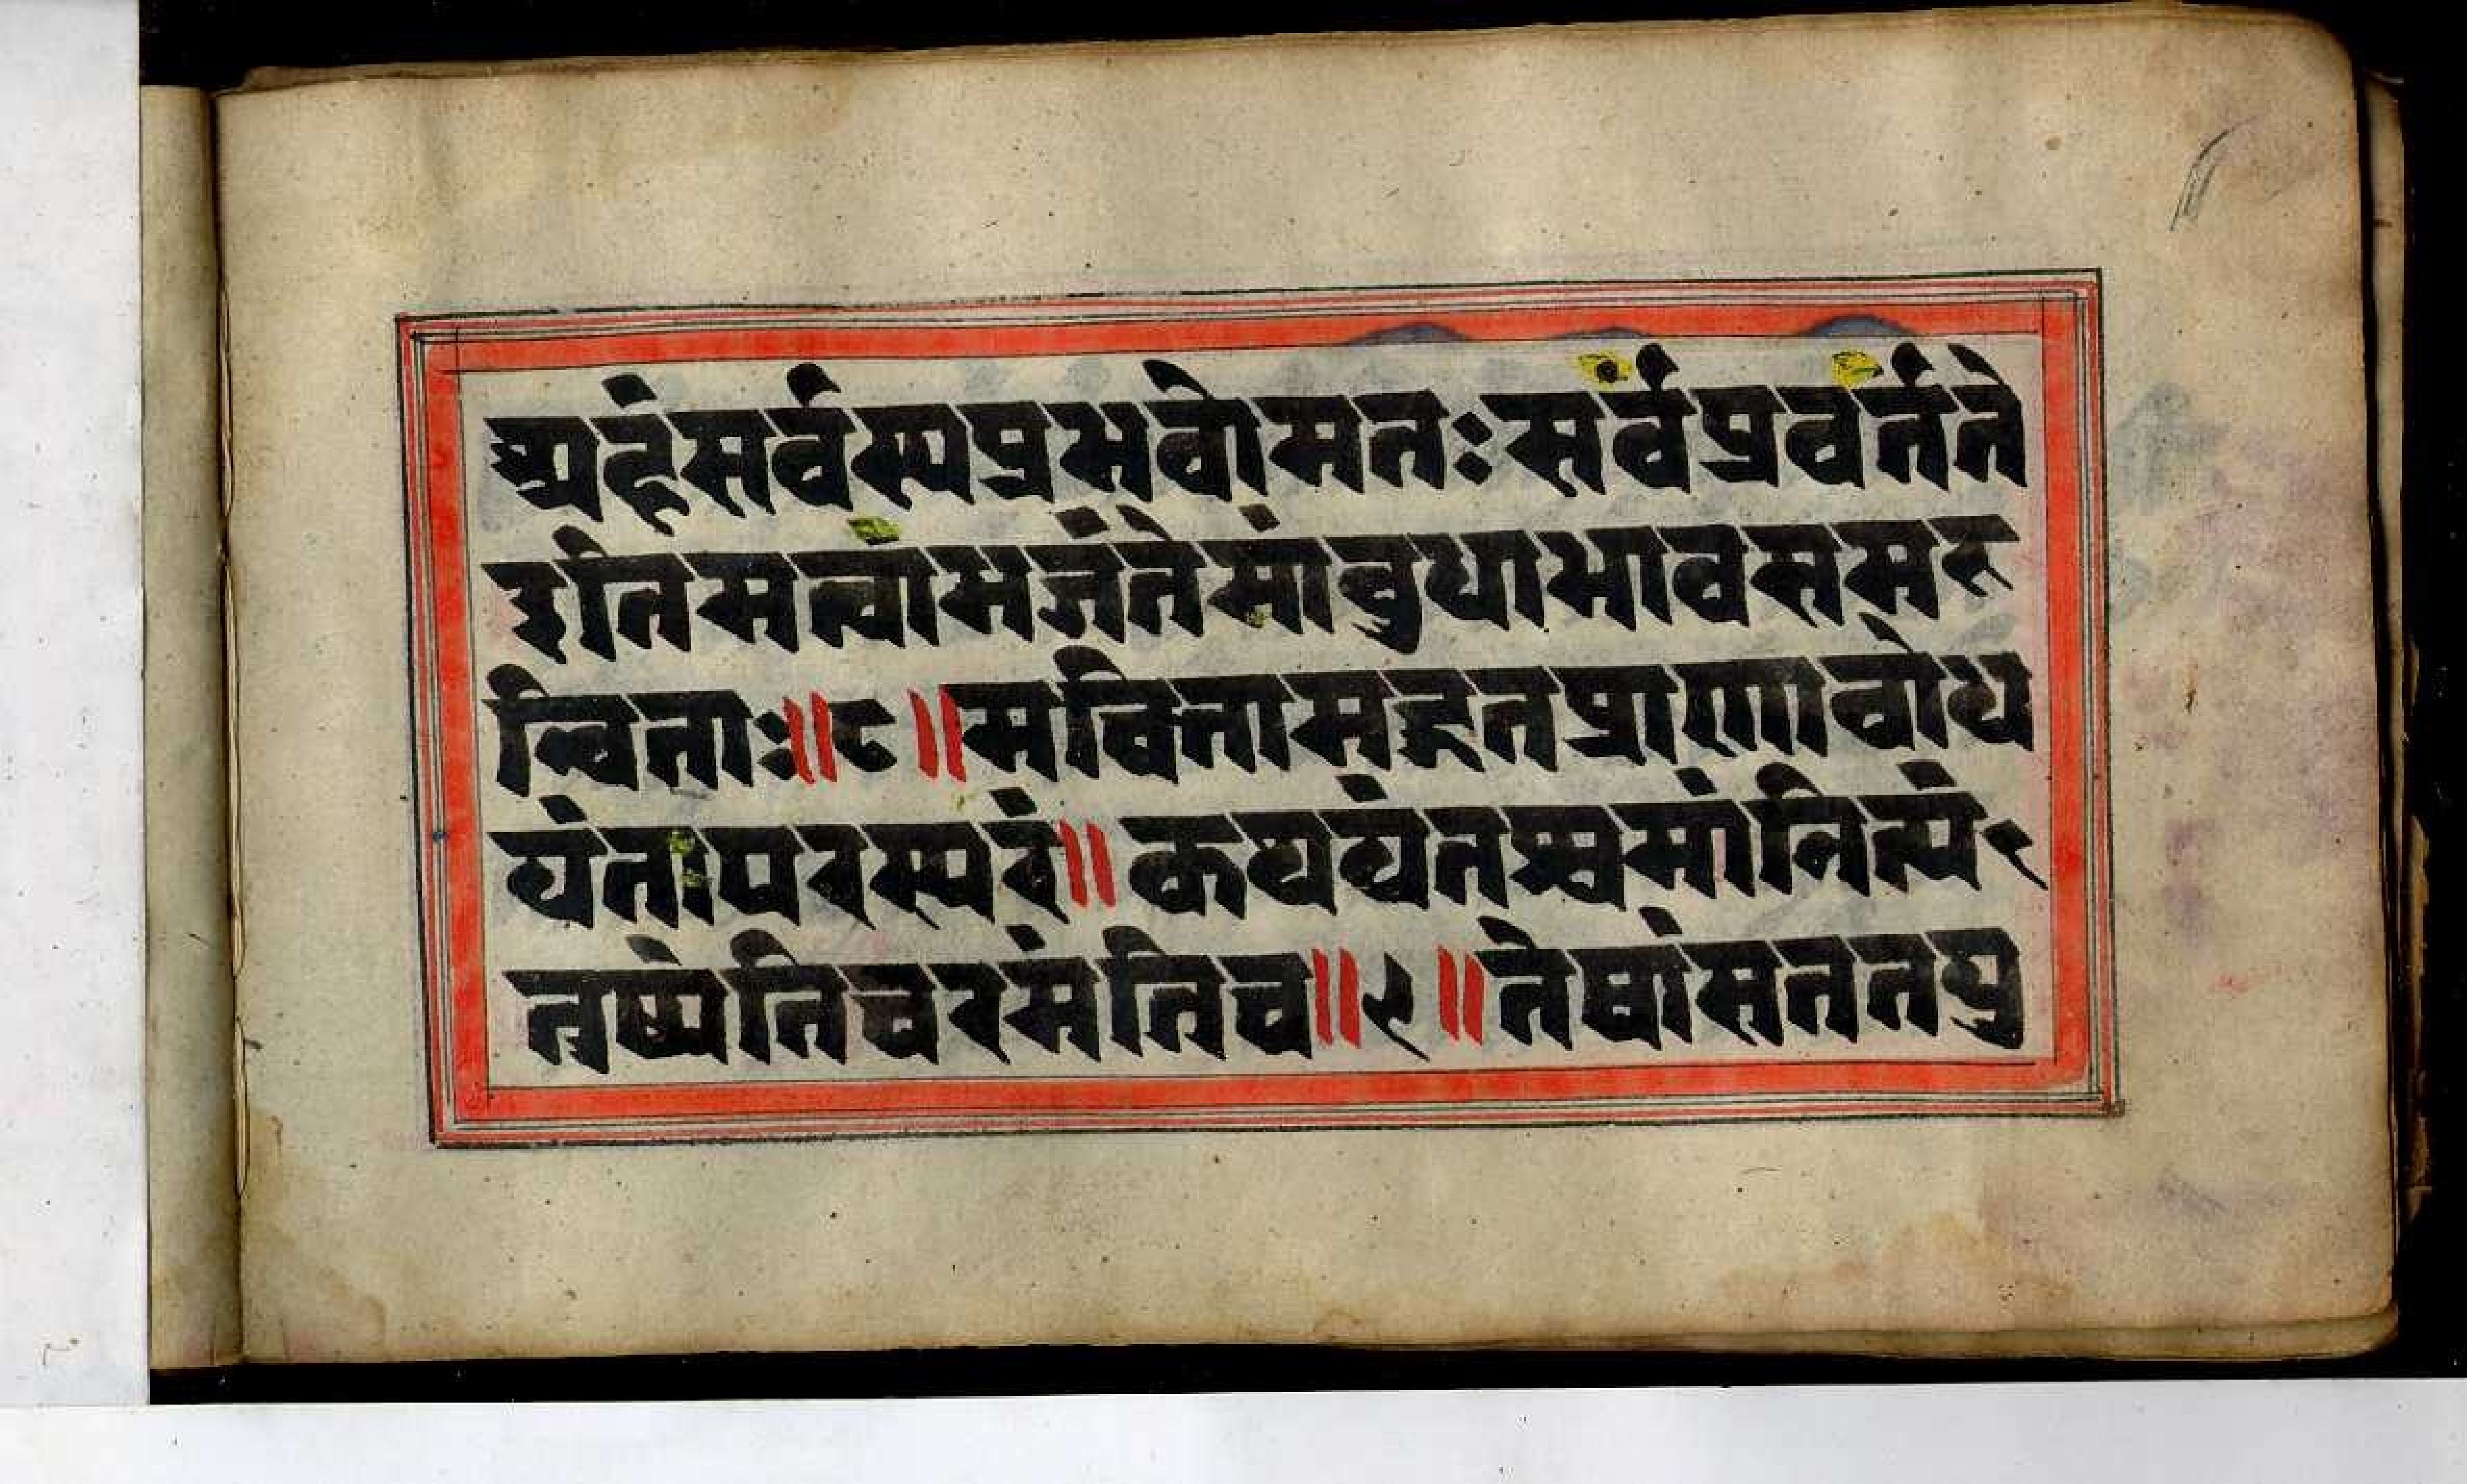 अहंसर्वस्यप्रभवोमतःसर्वंप्रवर्तते
इतिमत्वाभजंतेमांबुधाभावसमर
न्विताः॥८॥मच्चित्तामद्गतप्राणाबोध
यंतापरस्परं॥कथयंतश्चमांनित्यं१
तष्येतिचरमंतिच॥९॥तेषांसततयु